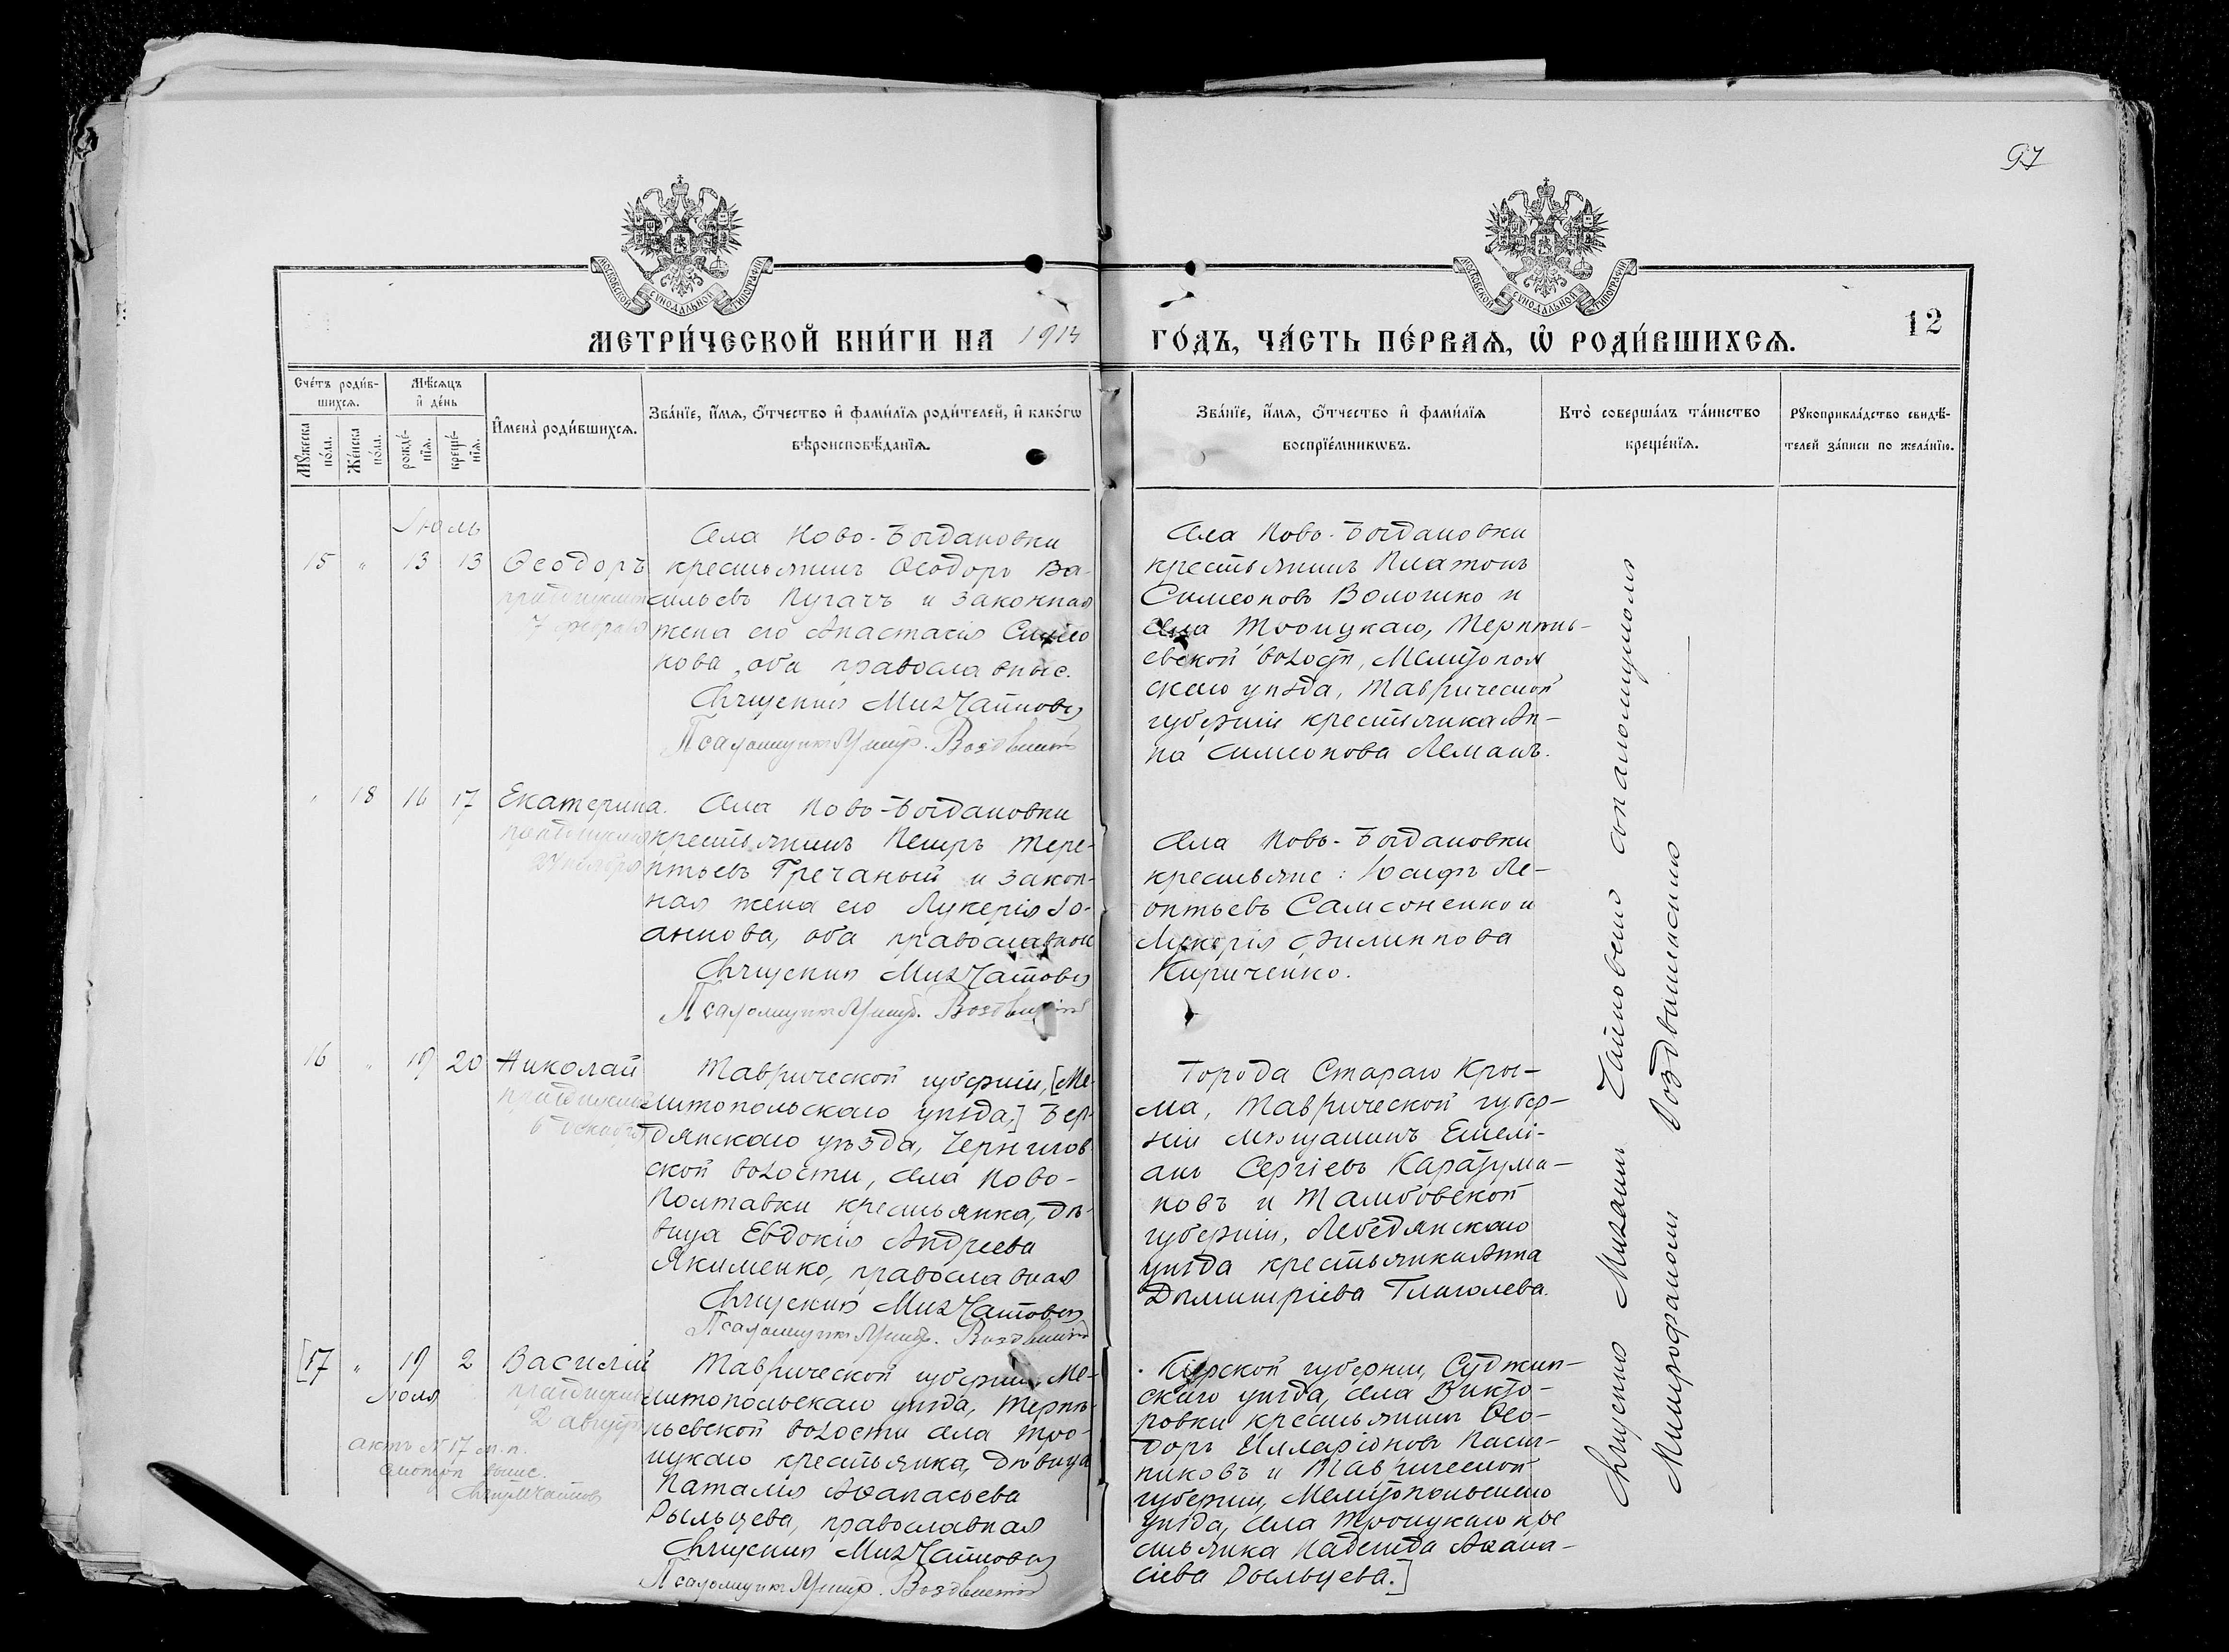 97
МОСКОВСКОЙ СѴНОДАЛЬНОЙ ТИПОГРАФІИ
МОСКОВСКОЙ СѴНОДАЛЬНОЙ ТИПОГРАФІИ
МЕТРИ́ЧЕСКОЙ КНИ́ГИ НА 1914 ГО́ДЪ, ЧА́СТЬ ПЕ́РВАѦ, Ѡ҆ РОДИ́ВШИХСѦ.
12
Сче́тъ роди́в-
шихсѧ.
Мꙋ́жеска по́ла.
Же́нска по́ла.
Мѣ́сѧцъ
и҆ де́нь
рожде́-
нїѧ.
креще́-
нїѧ.
И҆мена̀ роди́вшихсѧ.
Зва́нїе, и҆́мѧ, ѻ҆́тчество и҆ фами́лїѧ роди́телей, и҆ како́гѡ
вѣроисповѣ́данїѧ.
Зва́нїе, и҆́мѧ, ѻ҆́тчество и҆ фами́лїѧ
воспрїе́мникѡвъ.
Кто̀ соверша́лъ та́инство
креще́нїѧ.
Рꙋкоприкла́дство свидѣ́-
телей за́писи по жела́нїю.
Іюль
15 " 13 13 Ѳеодоръ
празднуетъ
7 февраля
Села Ново-Богдановки
крестьянинъ Ѳеодоръ Ва-
сильевъ Пугачъ и законная
жена его Анастасія Симео
нова, оба православные.
Священникъ Мих Чайковъ
Псаломщикъ Митр. Воздвиженскій
Села Ново-Богдановки
крестьянинъ Платонъ
Симеоновъ Волошко и
села Троицкаго, Терпѣнь-
евской волости, Мелитополь
скаго уѣзда, Таврической
губерніи крестьянка Ан-
на Симеонова Леманъ.
" 18 16 17 Екатерина.
празднуетъ
24 ноября
Села Ново-Богдановки
крестьянинъ Петръ Тере-
нтьевъ Гречаный и закон-
ная жена его Лукерія Іо-
аннова, оба православные
Священникъ Мих Чайковъ
Псаломщикъ Митр. Воздвиженскій
Села Ново-Богдановки
крестьяне: Іосифъ Ле-
онтьевъ Самсоненко и
Лукерія Филиппова
Кириченко.
16 " 19 20 Николай
празднуетъ
6 декабря
Таврической губерніи, [Ме-
литопольскаго уѣзда,] Бер-
дянскаго уѣзда, Чернигов
ской волости, села Ново-
Полтавки крестьянка, дѣ-
вица Евдокія Андреева
Якименко, православная
Священникъ Мих Чайковъ
Псаломщикъ Митр. Воздвиженскій
Города Стараго Кры-
ма, Таврической губер-
ніи мѣщанинъ Емелі-
анъ Сергіевъ Карагума-
новъ и Тамбовской
губерніи, Лебедянскаго
уѣзда крестьянка Анна
Димитріева Глаголева.
[17 " 19 2 Василій
Іюля
празднуетъ
2 августа
актъ № 17 м. п.
смотри выше.
Свящ М Чайковъ
Таврической губерніи, Ме-
литопольскаго уѣзда, Терпѣ-
ньевской волости села Тро-
ицкаго крестьянка, дѣвица
Наталія Аѳанасьева
Рыльцева, православная
Священникъ Мих Чайковъ
Псаломщикъ Митр. Воздвиженскій
Курской губерніи, Суджан-
скаго уѣзда, села Викто-
ровки крестьянинъ Ѳео-
доръ Илларіоновъ Пасеч-
никовъ и Таврической
губерніи, Мелитопольскаго
уѣзда, села Троицкаго кре
стьянка Надежда Аѳана-
сіева Рыльцева.]
Священникъ Михаилъ Чайковскій съ псаломщикомъ
Митрофаномъ Воздвиженскимъ